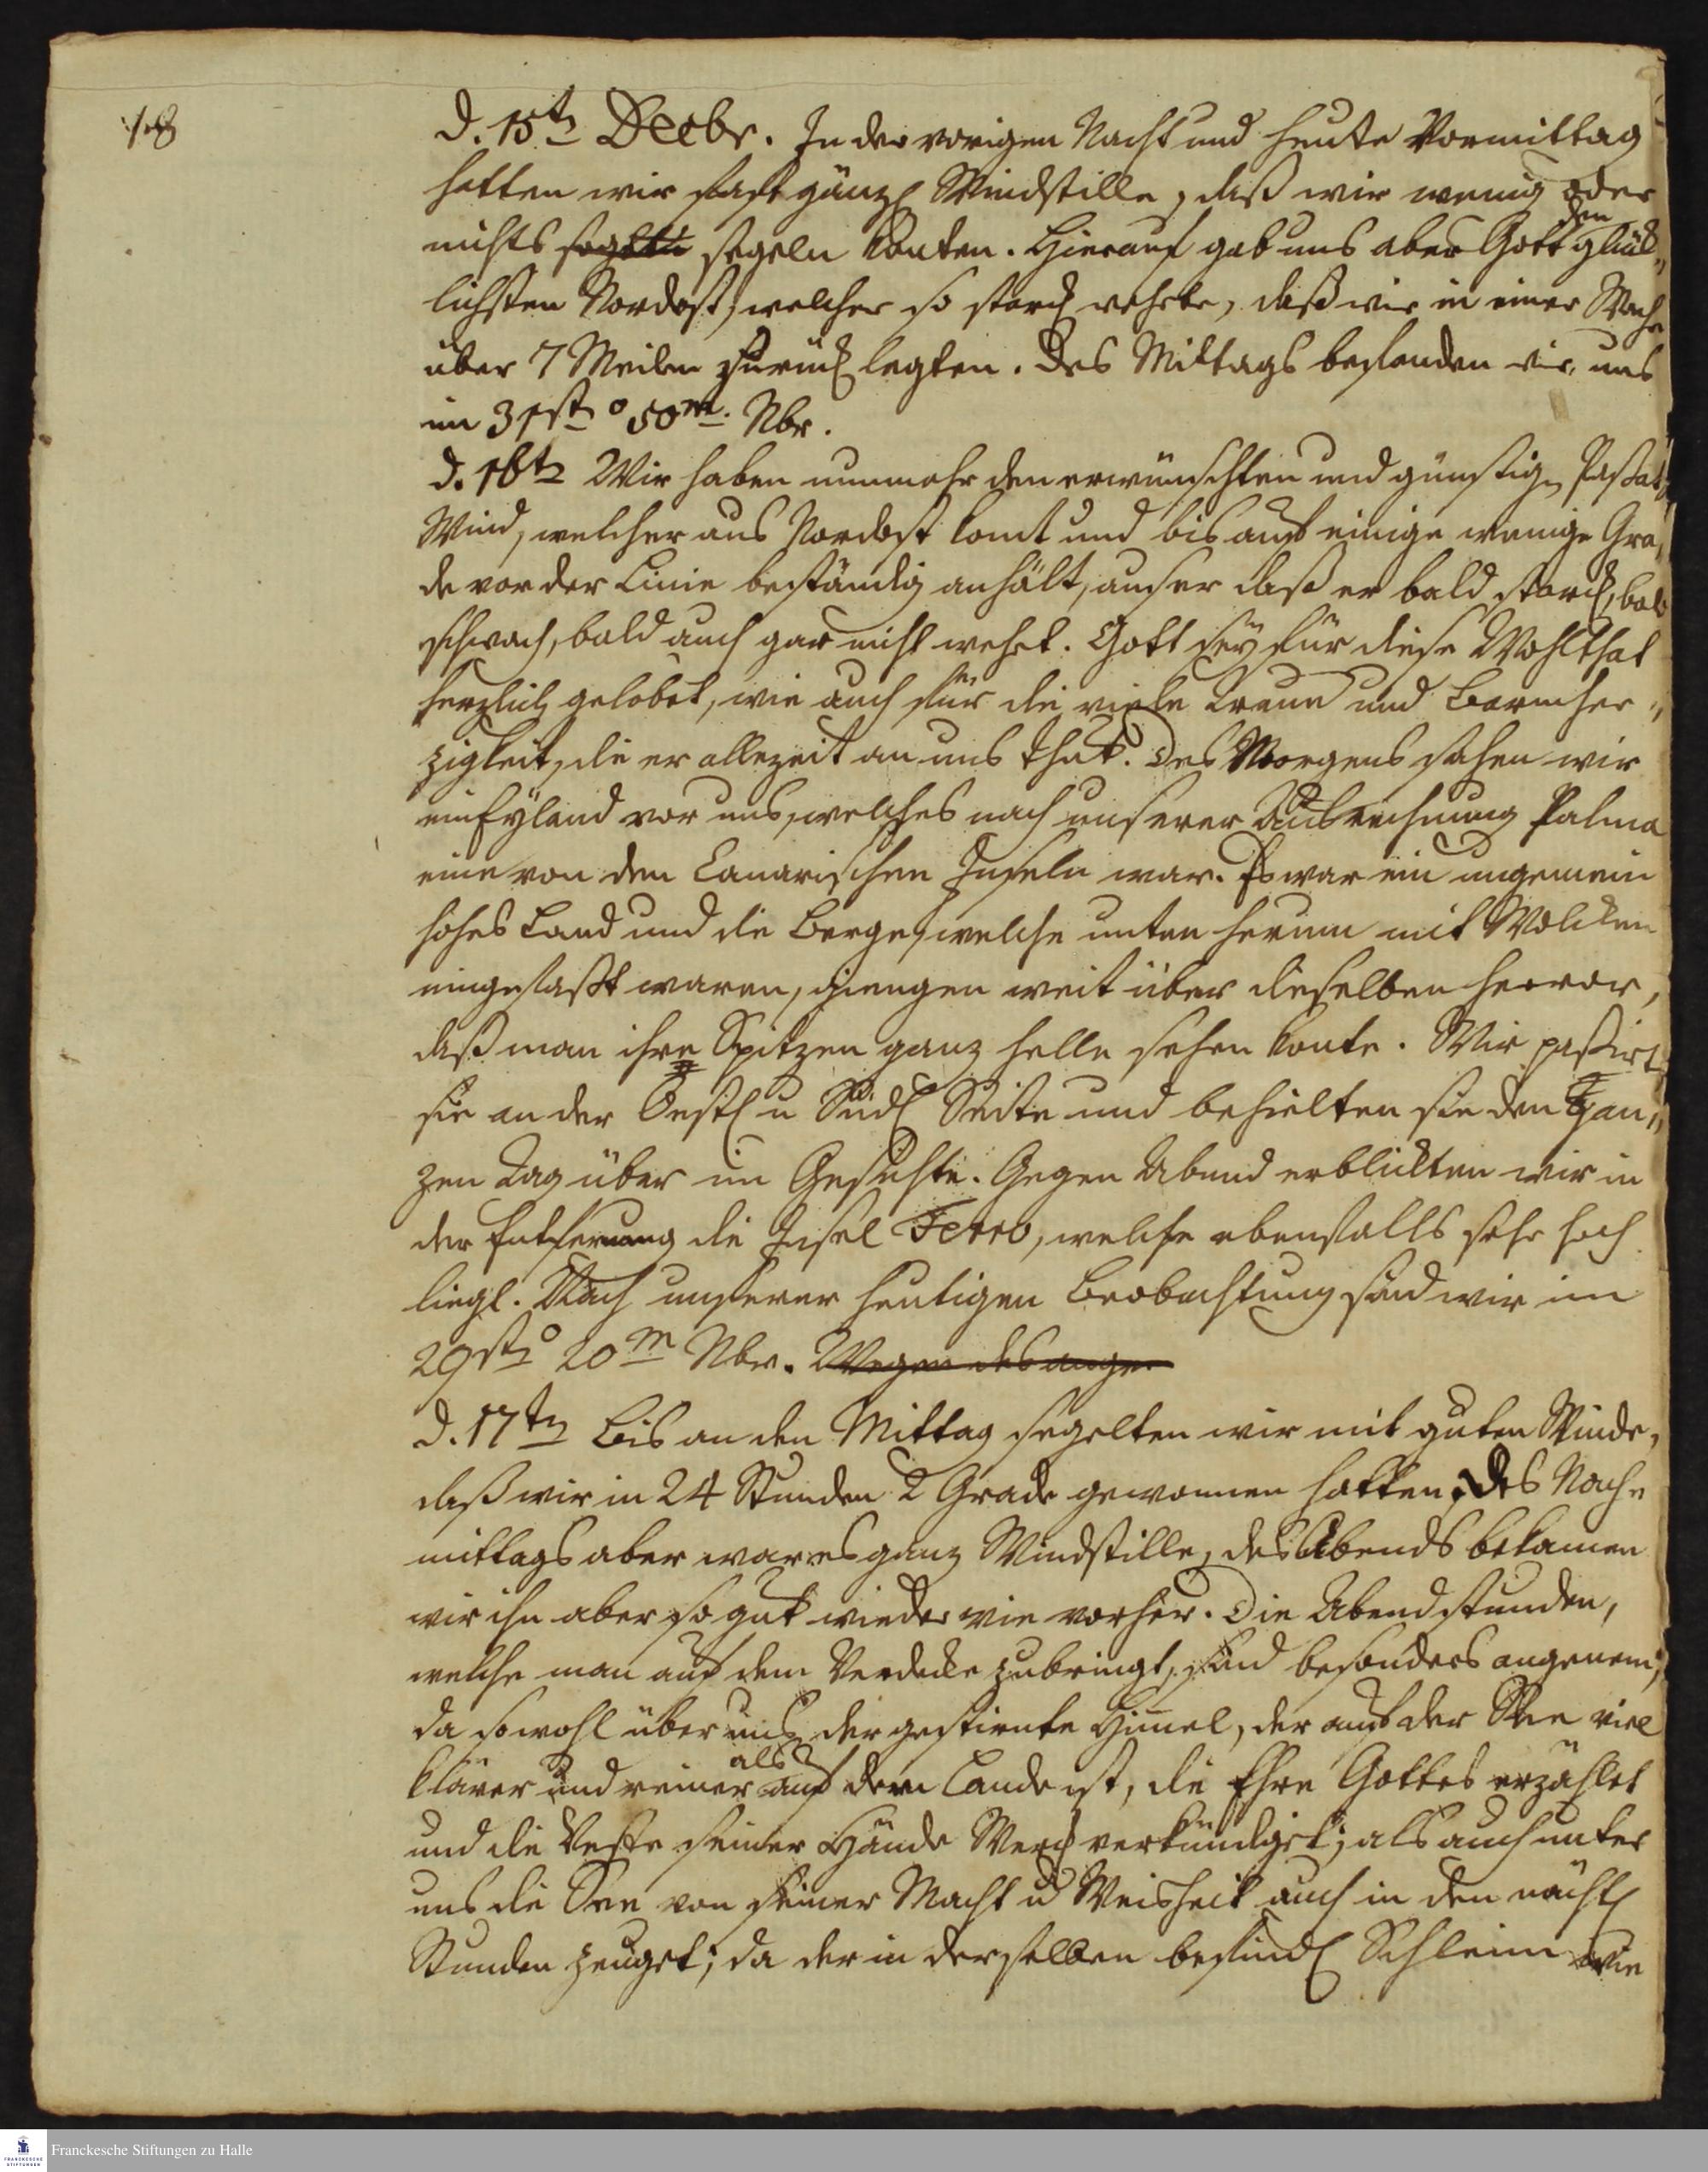 18
d. 15tn Decbr. In der vorigen Nacht und heute Vormittag
hatten wir fast gänzl Windstille, daß wir wenig oder
nichts segeln konten. Hierauf gab uns aber Gott den glück„
lichsten Nordost, welcher so starck wehete, daß wir in einer Wache
über 7 Meilen zurück legten. Des Mittags befanden wir uns
im 31stn° 50m. Nbr.
d. 16tn Wir haben nunmehr den erwünschten und günstign Passat„
Wind, welcher aus Nordost komt und bis auf einige wenige Gra„
de vor der Linie beständig anhält, auser daß er bald starck, bald
schwach, bald auch gar nicht wehet. Gott sey für diese Wohlthat
herzlich gelobet, wie auch für die viele Treue und Barmher„
zigkeit, die er allezeit an uns thut. Des Morgens sahen wir
ein Eyland vor uns, welches nach unserer Ausrechnung Palma
eine von den Canarischen Inseln war. Es war ein ungemein
hohes Land und die Berge, welche unten herum mit Wolcken
eingefaßt waren, giengen weit über dieselben hervor,
daß man ihre Spitzen ganz helle sehen konte. Wir passirtn
sie an der Oestl u Südl Seite und behielten sie den gan„
zen Tag über im Gesichte. Gegen Abend erblickten wir in
der Entfernung die Insel Ferro, welche ebenfalls sehr hoch
liegt. Nach unserer heutigen Beobachtung sind wir im
29stn° 20m Nbr. Wegen des ange
d. 17tn Bis an den Mittag segelten wir mit guten Winde,
daß wir in 24 Stunden 2 Grade gewonnen hatten, des Nach„
mittags aber war es ganz Windstille, des Abends bekamen
wir ihn aber so gut wieder wie vorher. Die Abendstunden,
welche man auf dem Verdecke zubringt, sind besonders angenem,
da sowohl über uns der gestirnte Himel, der auf der See viel
klärer und reiner als auf dem Lande ist, die Ehre Gottes erzählet
und die Veste seiner Hände Werck verkündiget; als auch unter
uns die See von seiner Macht u Weisheit auch in den nächtl
Stunden zeuget; da der in derselben befindl Schleim wie
Franckesche Stiftungen zu Halle